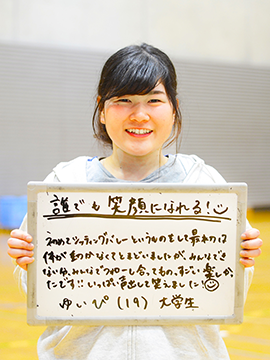 誰でも笑顔になれる!
初めてシッティングバレーというものをして最初は
体が動かなくてとまどいましたが、みんなでさ
ない分、みんなでフォローし合ってもの、すごい楽しか
たです!!いっぱい声出して笑えました!
ゆいぴ(19)大学生